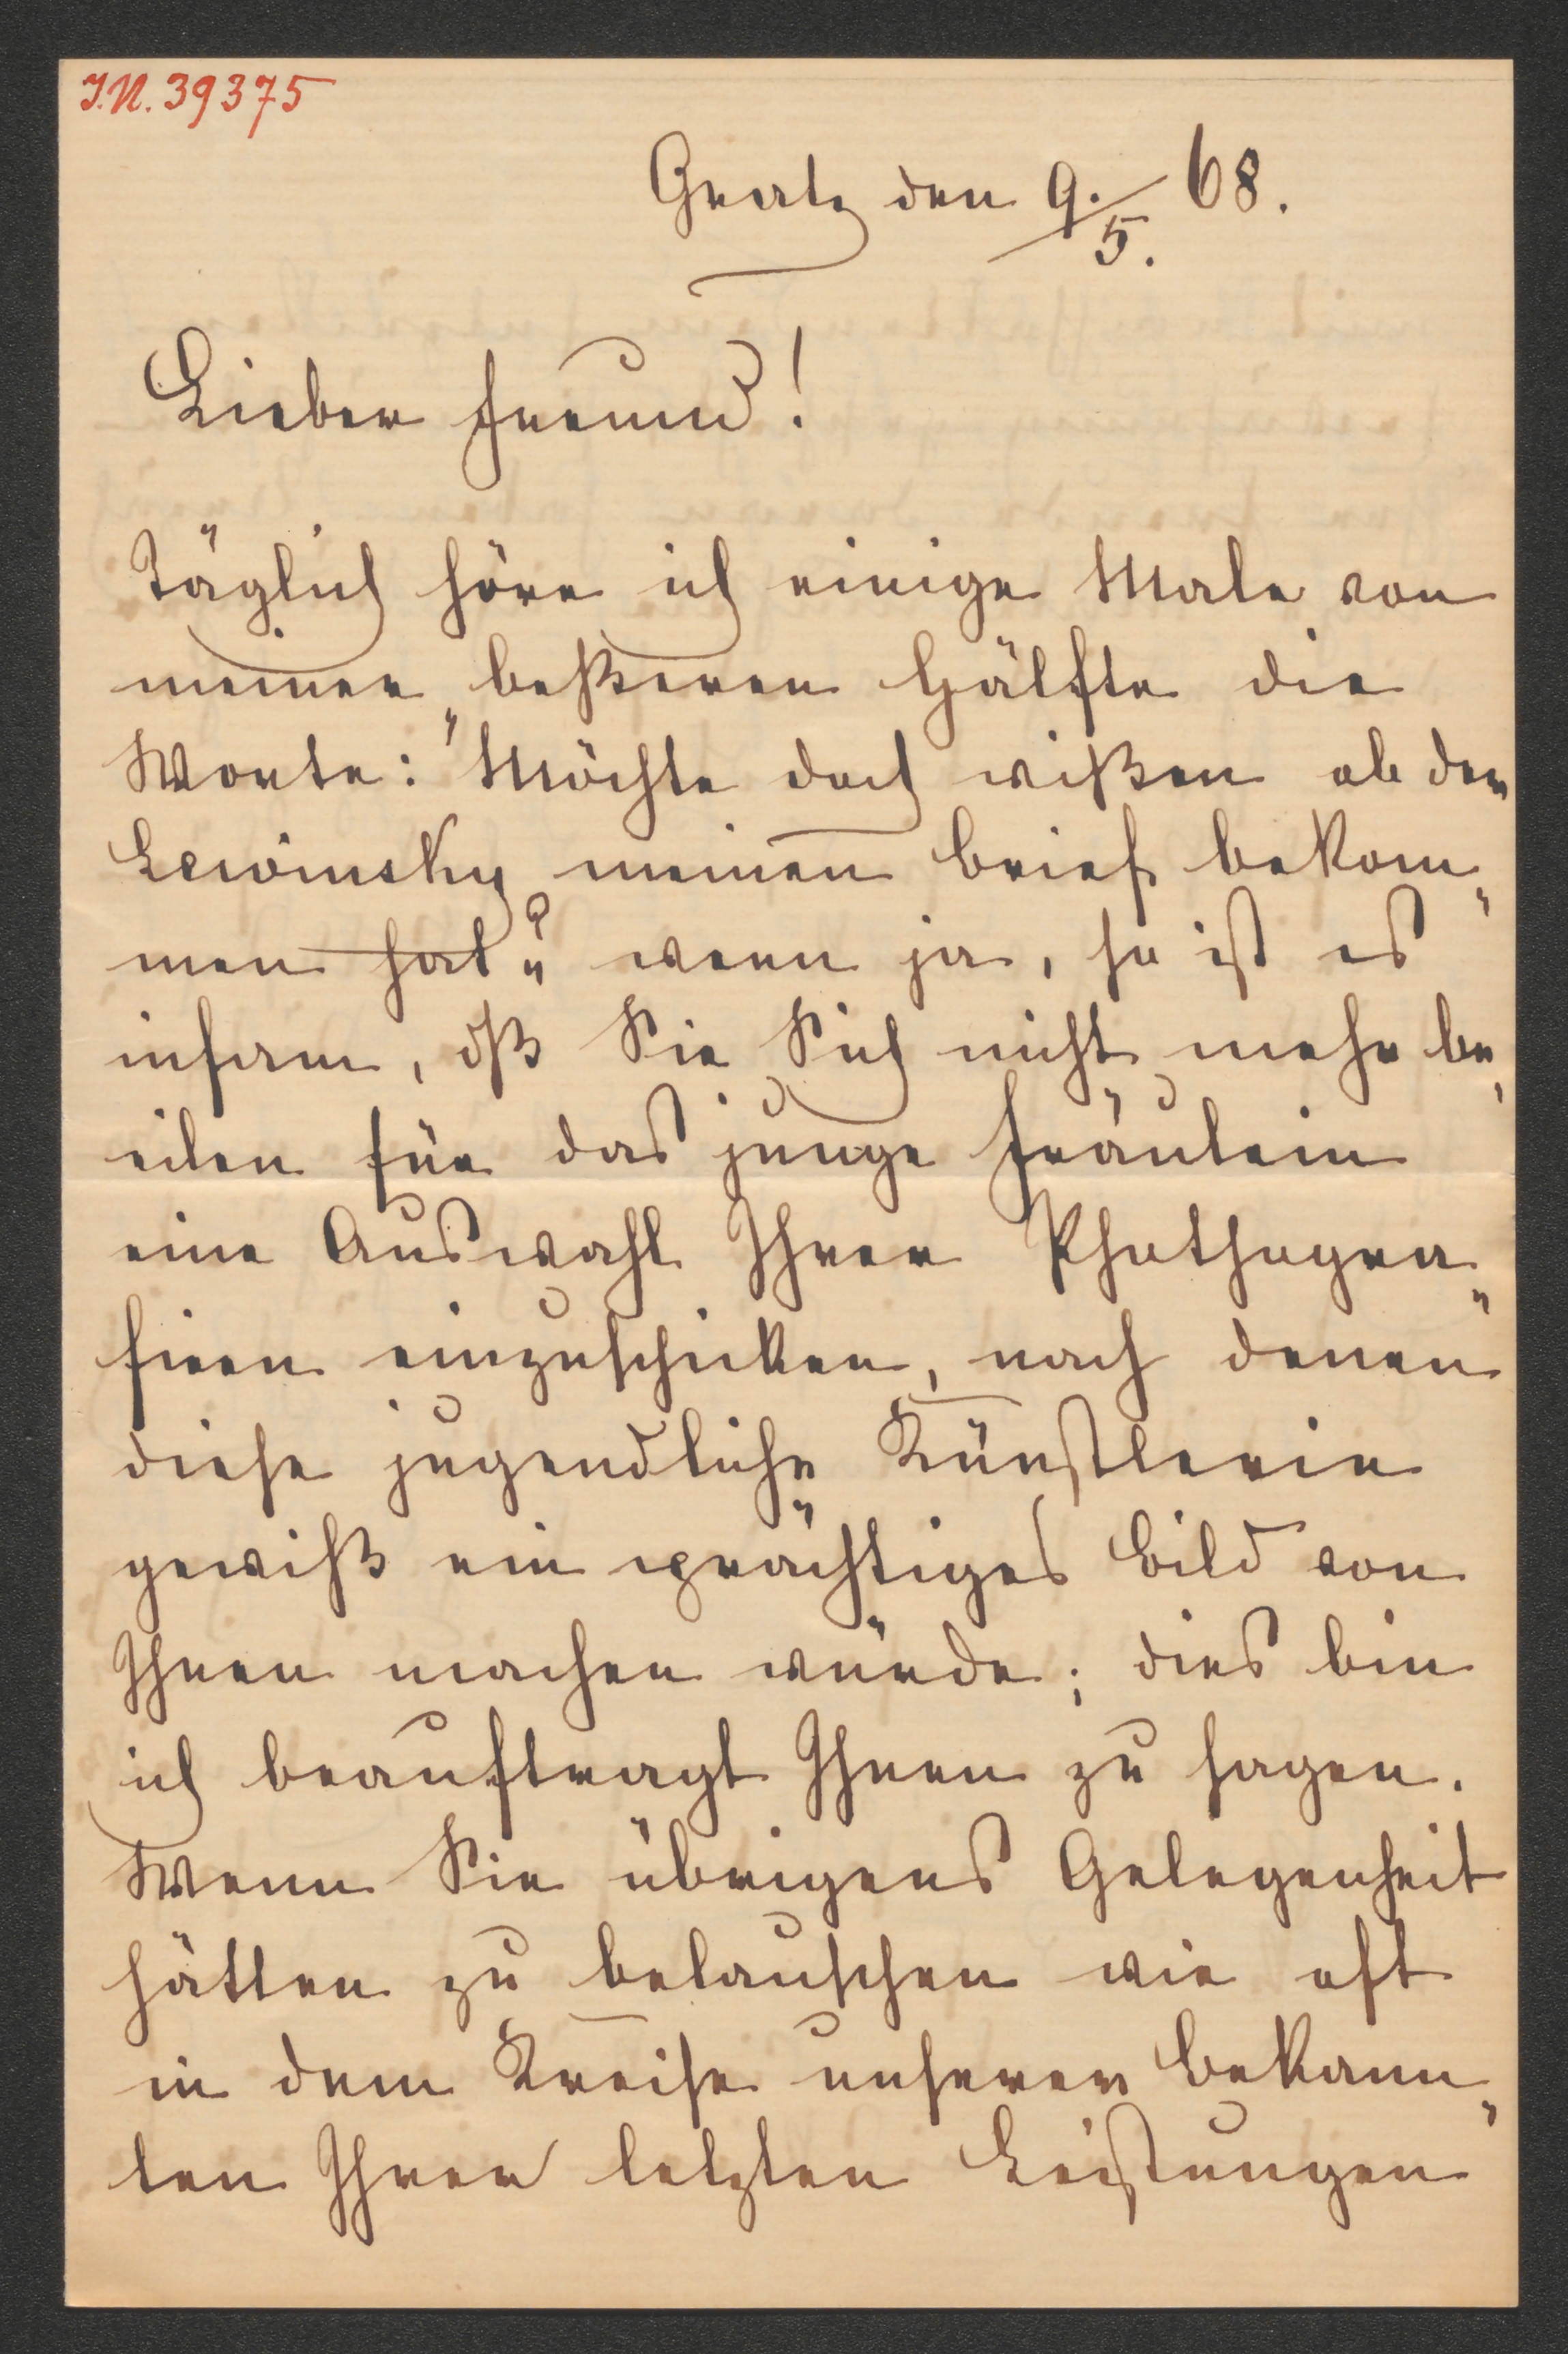 I.N. 39375
Gratz den 9./5. 68.
Lieber Freund!
Täglich höre ich einige Male von
meiner beßeren Hälfte die
Worte: "Möchte doch wißen ob der
Lewinsky meinen Brief bekom„
men hat?" wenn ja, so ist es
infam, dß Sie Sich nicht mehr be„
eilen für das junge Fräulein
eine Auswahl Ihrer Phothogra„
fieen einzuschicken, nach denen
diese jugendliche Künstlerin
gewiß ein prächtiges Bild von
Ihnen machen würde; dies bin
ich beauftragt Ihnen zu sagen.
Wenn Sie übrigens Gelegenheit
hätten zu belauschen wie oft
in dem Kreise unserer Bekann„
ten Ihrer letzten Leistungen